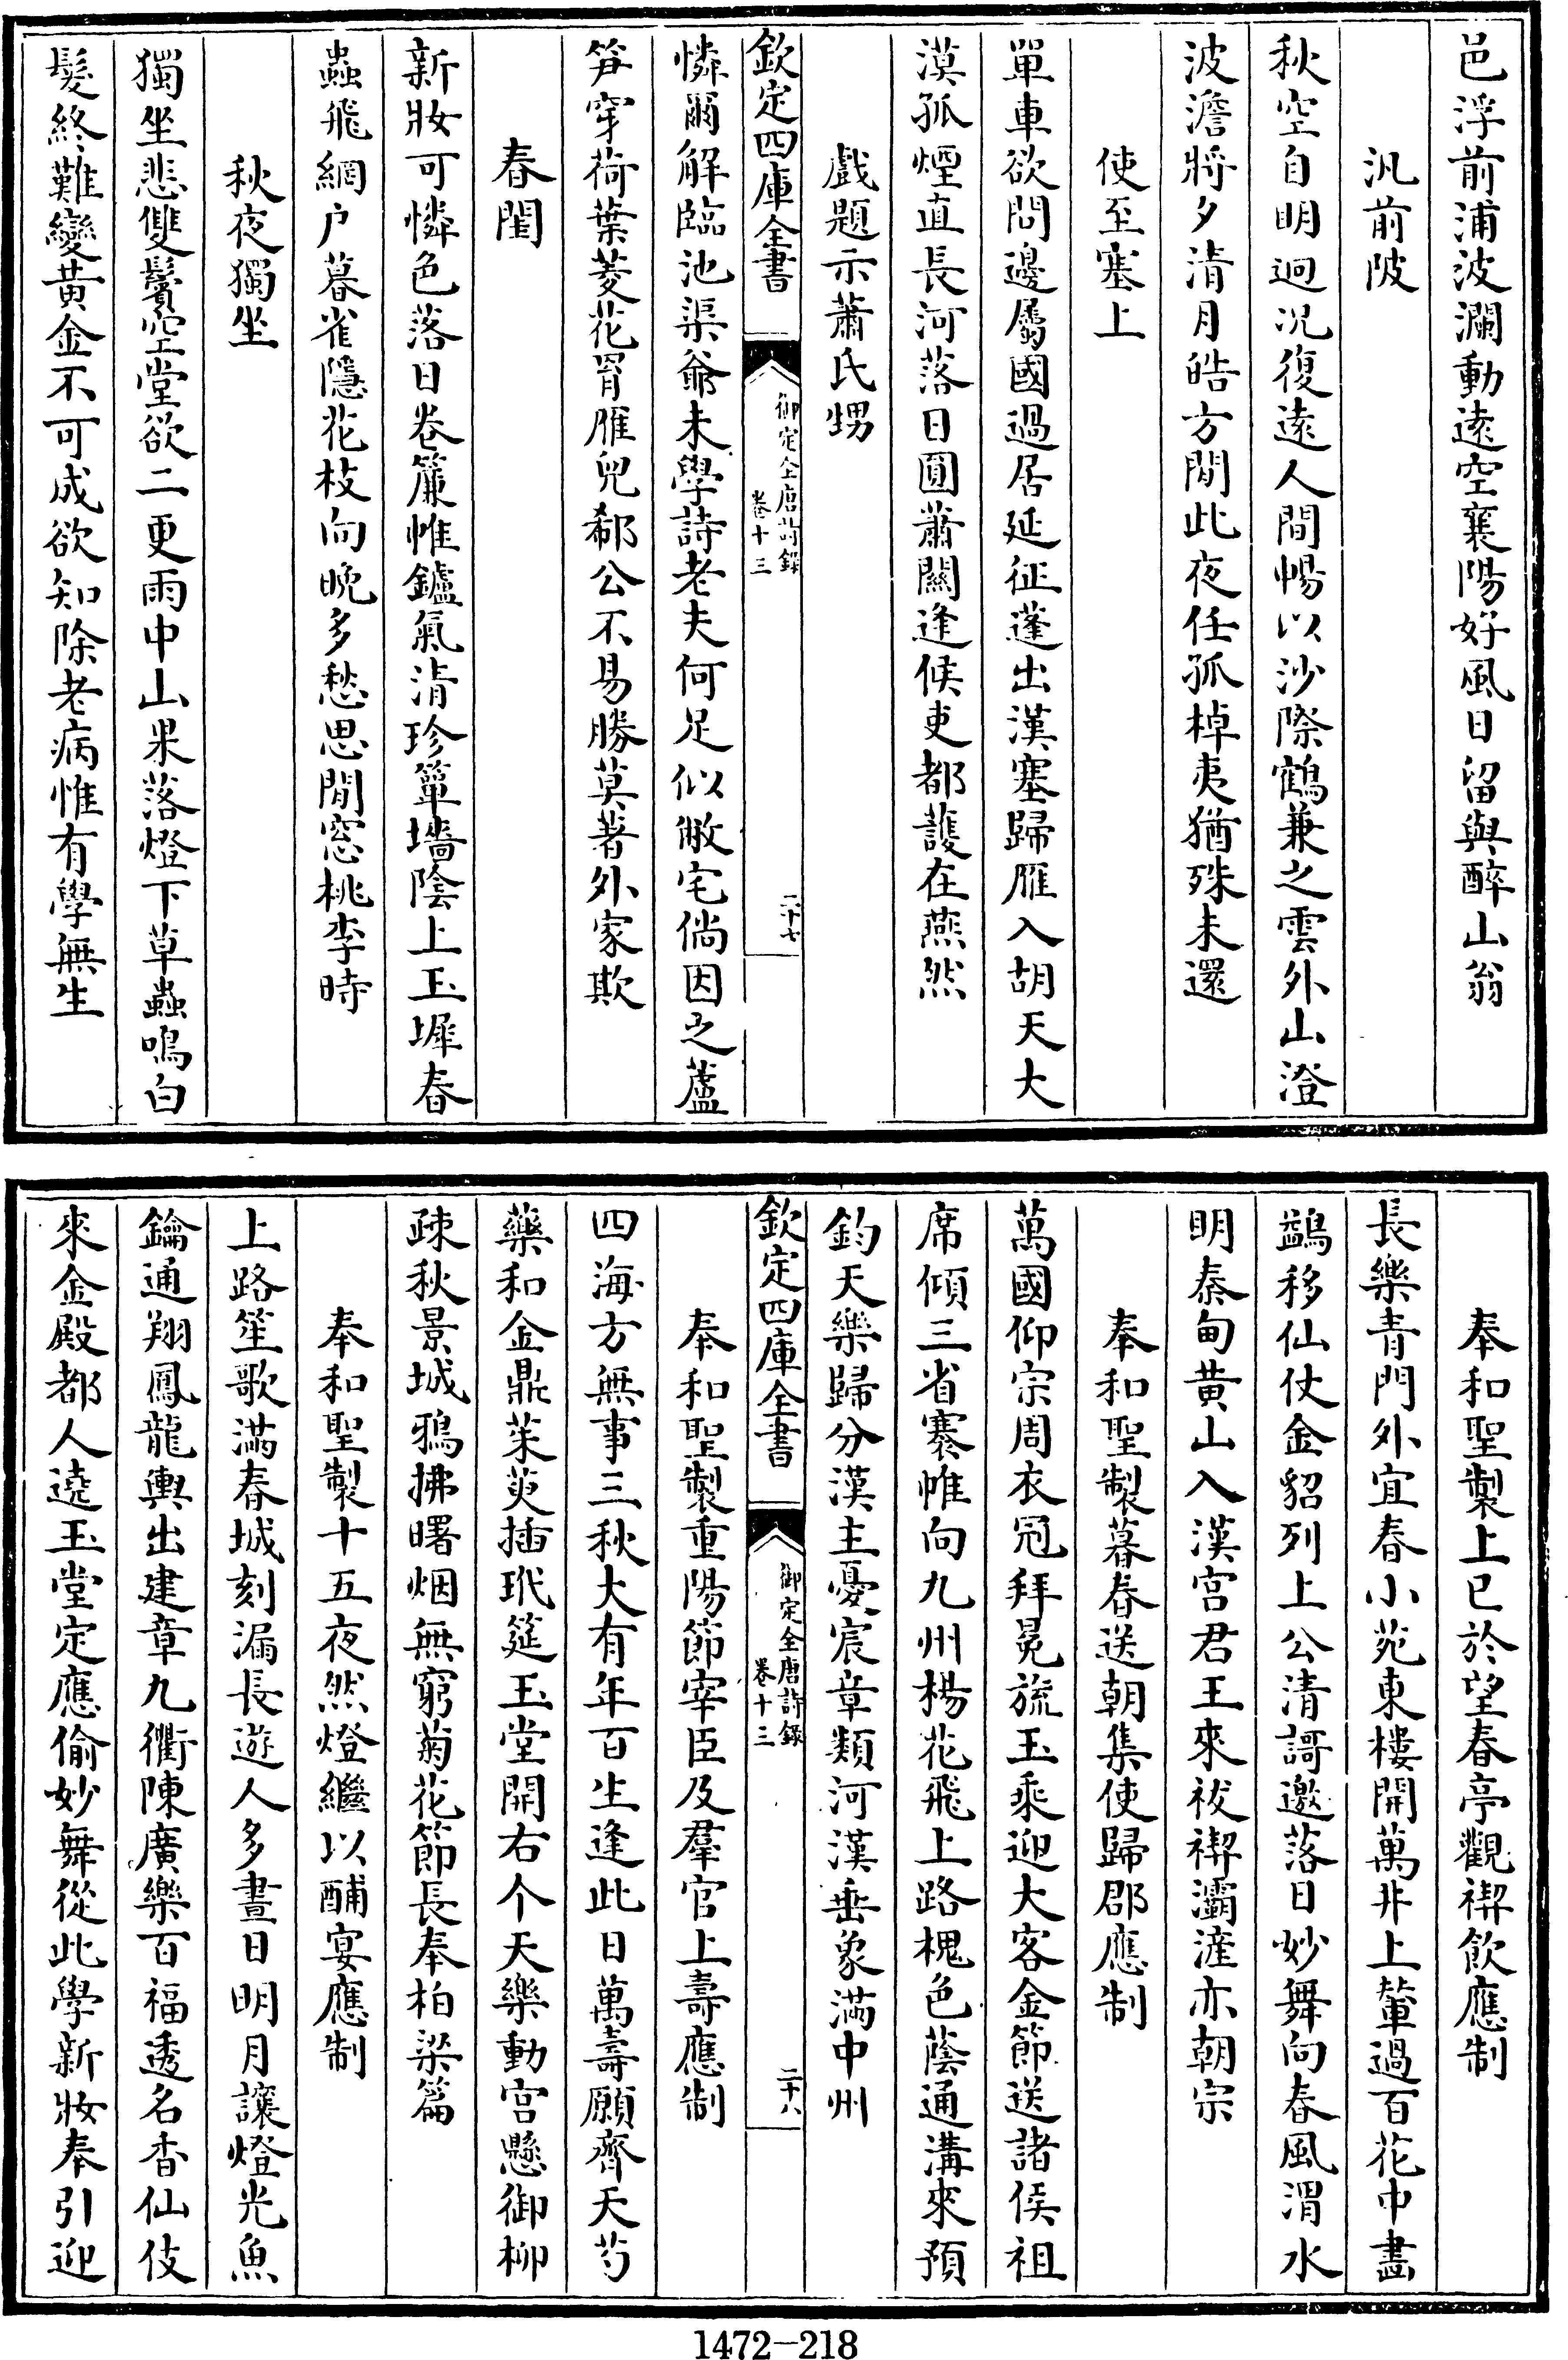 邑浮前浦波瀾動遠空襄陽好風日留與醉山翁
汎前陂
秋空自明迥况復遠人間暢以沙際鶴兼之雲外山澄
波澹將夕清月皓方閒此夜任孤棹夷猶殊未還
使至塞上
單車欲問邊屬國過居延征蓬出漢塞歸雁入胡天大
漠孤煙直長河落日圓蕭關逢候吏都護在燕然
戲題示蕭氏甥
欽定四庫全書
御定全唐詩錄
卷十三
二十七
憐爾解臨池渠爺未學詩老夫何足似敝宅倘因之蘆
笋穿荷葉菱花罥雁兒郗公不易勝莫著外家欺
春閨
新妝可憐色落日卷簾帷鑪氣清珍簟墻陰上玉墀春
蟲飛網户暮雀隱花枝向晚多愁思閒窓桃李時
秋夜獨坐
獨坐悲雙鬢空堂欲二更雨中山果落燈下草蟲鳴白
髮終難變黄金不可成欲知除老病惟有學無生
奉和聖製上巳於望春亭觀禊飲應制
長樂青門外宜春小苑東樓開萬井上輦過百花中畫
鷁移仙仗金貂列上公清謌邀落日妙舞向春風渭水
明秦甸黄山入漢宫君王來祓禊灞滻亦朝宗
奉和聖製暮春送朝集使歸郡應制
萬國仰宗周衣冠拜冕旒玉乘迎大客金節送諸侯祖
席傾三省褰帷向九州楊花飛上路槐色蔭通溝來預
鈞天樂歸分漢主憂宸章類河漢垂象滿中州
欽定四庫全書
御定全唐詩錄
卷十三
二十八
奉和聖製重陽節宰臣及羣官上壽應制
四海方無事三秋大有年百生逢此日萬壽願齊天芍
藥和金鼎茱萸插玳筵玉堂開右个天樂動宫懸御柳
疎秋景城鴉拂曙烟無窮菊花節長奉柏梁篇
奉和聖製十五夜然燈繼以酺宴應制
上路笙歌滿春城刻漏長遊人多晝日明月讓燈光魚
鑰通翔鳳龍輿出建章九衢陳廣樂百福透名香仙伎
來金殿都人遶玉堂定應偷妙舞從此學新妝奉引迎
1472-218